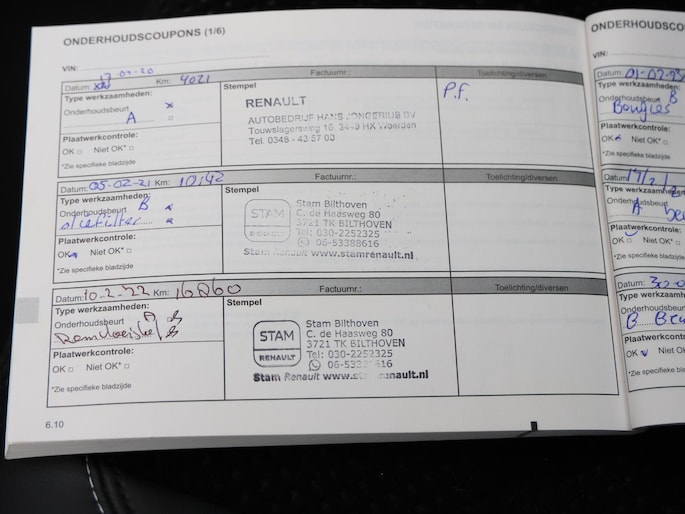 ONDERHOUDSCOUPONS (1/6)
VIN:
Datum: 17 01-20 Km: 4021 Factuurnr.: Toelichting/diversen
Type werkzaamheden: Stempel P.f.
Onderhoudsbeurt x
A
RENAULT
AUTOBEDRIJF HANS JONGERIUS BV
Touwslagersweg 16, 3449 HX Woerden
Tel. 0348 - 43 57 00
Plaatwerkcontrole:
OK Niet OK*
*Zie specifieke bladzijde
Datum: 05-02-21 Km: 10142 Factuurnr.: Toelichting/diversen
Type werkzaamheden: Stempel
Onderhoudsbeurt B
oliefilter
STAM
RENAULT
Stam Bilthoven
C. de Haasweg 80
3721 TK BILTHOVEN
Tel: 030-2252325
06-53388616
Stam Renault www.stamrenault.nl
Plaatwerkcontrole:
OK Niet OK*
*Zie specifieke bladzijde
Datum: 10-2-22 Km: 16260 Factuurnr.: Toelichting/diversen
Type werkzaamheden: Stempel
Onderhoudsbeurt A
STAM
RENAULT
Stam Bilthoven
C. de Haasweg 80
3721 TK BILTHOVEN
Tel: 030-2252325
Stam Renault
Plaatwerkcontrole:
OK Niet OK*
*Zie specifieke bladzijde
6.10
ONDERHOUDSC
VIN:
Datum: 01-02-23
Type werkzaamheden
Onderhoudsbeurt B
Bougies
Plaatwerkcontrole:
OK Niet OK*
*Zie specifieke bladz
Datum:
Type werkzaamheden
Onderhoudsbeurt
A
Plaatwerkcontrole:
OK Niet OK*
*Zie specifieke bladz
Datum: 30-0
Type werkzaamhe
Onderhoudsbeurt
B
Plaatwerkcontrole
OK Niet OK*
*Zie specifieke bla